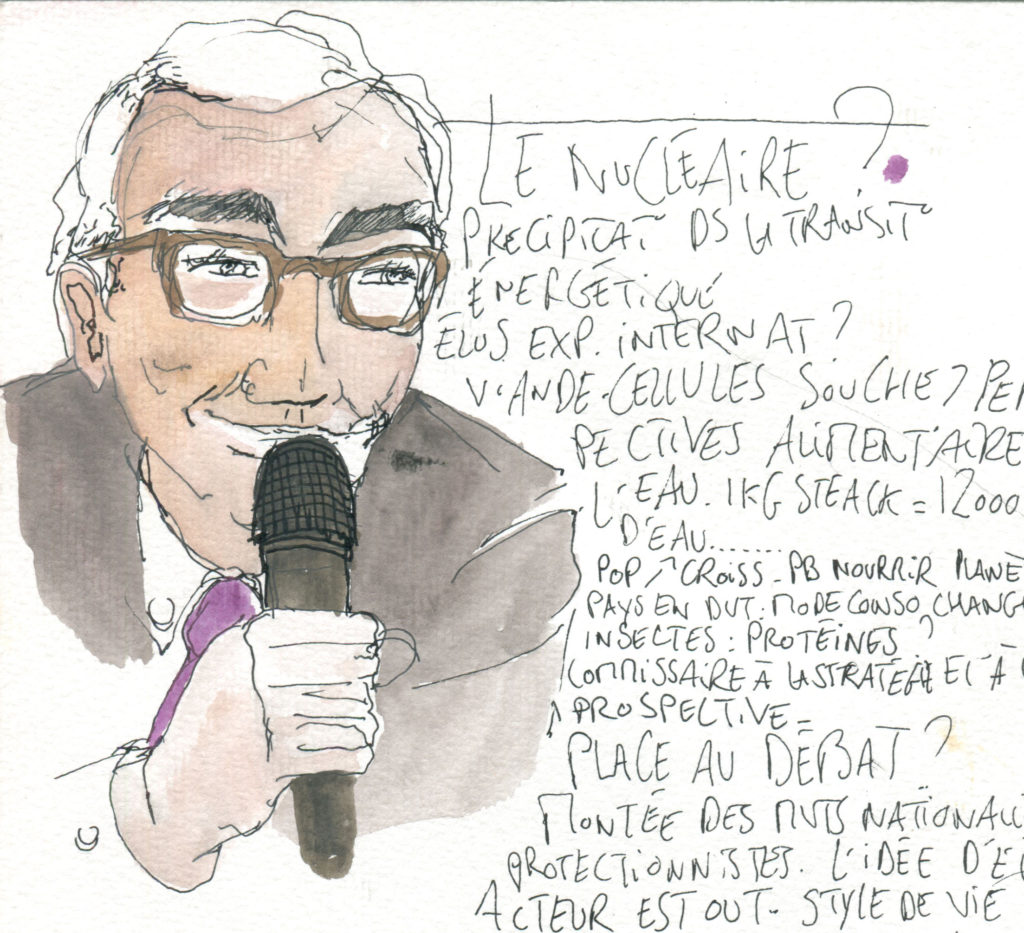 LE NUCLÉAIRE ?
PRECIPITAT° DS LA TRANSIT°
ÉNERGÉTIQUE
ÉLUS EXP. INTERNAT ?
VIANDE-CELLULES SOUCHE ? PER
PECTIVES ALIMENTAIRE
L'EAU. 1KG STEACK = 12000
D'EAU.......
POP ↗ CROISS - PB NOURRIR PLANÈ
PAYS EN DVT : MODE CONSO CHANG
INSECTES : PROTÉINES ?
COMMISSAIRE À LA STRATÉGIE ET À
PROSPECTIVE -
PLACE AU DÉBAT ?
MONTÉE DES MVTS NATIONAU
PROTECTIONNISTES. L'IDÉE D'Ê
ACTEUR EST OUT. STYLE DE VIE